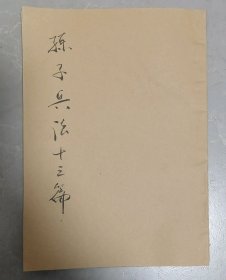 孫子兵法十三篇